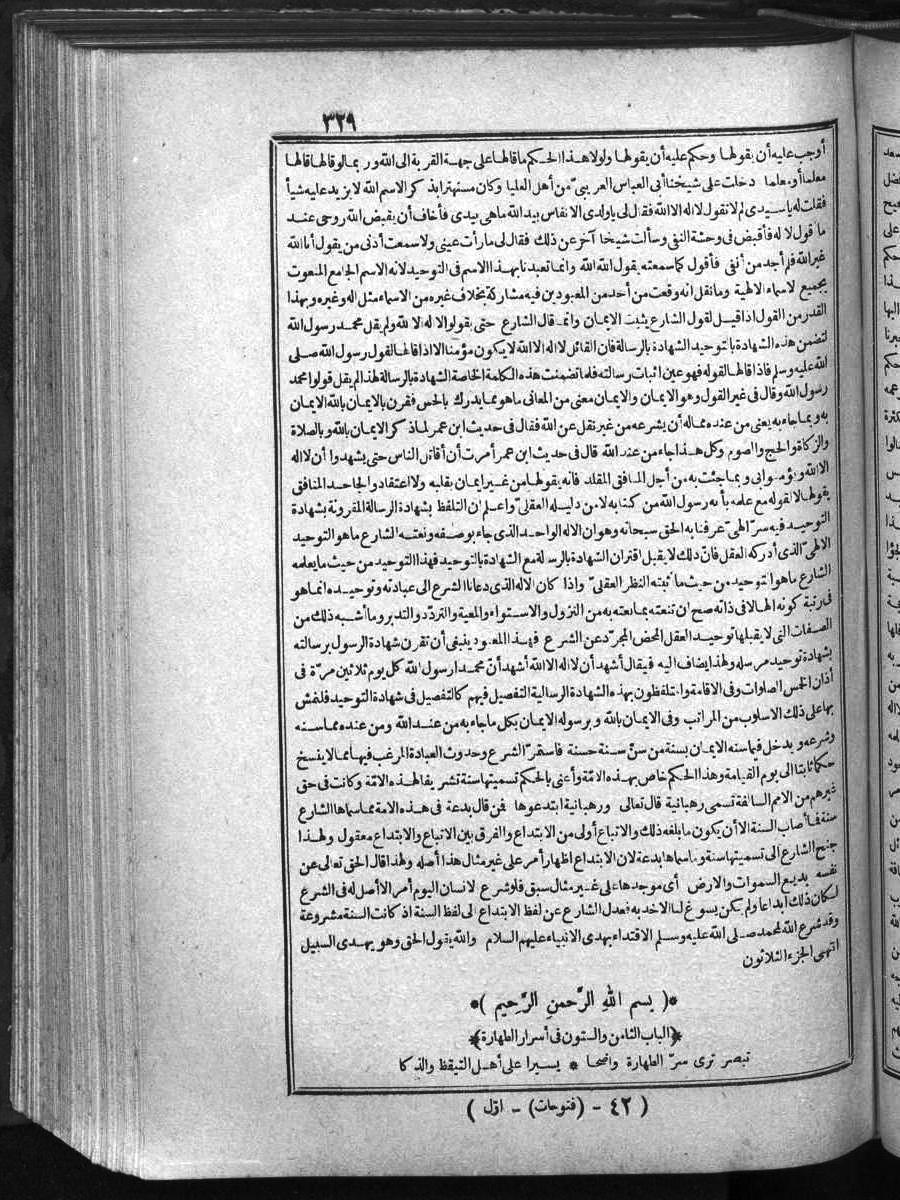 ٣٢٩
أوجب عليه أن يقولها وحكم عليه أن يقولها ولولا هذا الحكم ما قالها على جهة القربة الى الله وربما لو قالها قالها
معلما أو معلما دخلت على شيخنا أبى العباس العريبىّ من أهل العليا وكان مستهترا بذكر الاسم الله لا يزيد عليه شيأ
فقلت له يا سيدى لم لا تقول لا اله الا الله فقال لى يا ولدى الانفاس بيد الله ما هى بيدى فأخاف أن يقبض الله روحى عند
ما قول لا له فأقبض فى وحشة النفى وسألت شيخا آخر عن ذلك فقال لى ما رأت عينى ولا سمعت أذنى من يقول أنا الله
غير الله فلم أجد من أنفى فأقول كما سمعته يقول الله الله وانما تعبدنا بهذا الاسم فى التوحيد لانه الاسم الجامع المنعوت
بجميع لاسماء الالهية وما نقل انه وقعت من أحد من المعبودين فيه مشاركة بخلاف غيره من الاسماء مثل اله وغيره وبهذا
القدر من القول اذا قيل لقول الشارع يثبت الايمان وانما قال الشارع حتى يقولوا لا اله الا الله ولم يقل محمد رسول الله
لتضمن هذه الشهادة بالتوحيد الشهادة بالرسالة فان القائل لا اله الا الله لا يكون مؤمنا الا اذا قالها لقول رسول الله صلى
الله عليه وسلم فاذا قالها لقوله فهو عين اثبات رسالته فلما تضمنت هذه الكلمة الخاصة الشهادة بالرسالة لهذا لم يقل قولوا محمد
رسول الله وقال فى غير القول وهو الايمان والايمان معنى من المعانى ما هو مما يدرك بالحس فقرن بالايمان بالله الايمان
به وبما جاء به يعنى من عنده مما له أن يشرعه من غير نقل عن الله فقال فى حديث ابن عمر لما ذكر الايمان بالله وبالصلاة
والزكاة والحج والصوم وكل هذا جاء من عند الله قال فى حديث ابن عمر أمرت أن أقاتل الناس حتى يشهدوا أن لا اله
الا الله ويؤمنوا بى وبما جئت به من أجل المنافق المقلد فانه يقولها من غير ايمان بقلبه ولا اعتقاد والجاحد المنافق
يقولها لا لقوله مع علمه بأنه رسول الله من كتابه لا من دليله العقلىّ واعلم ان التلفظ بشهادة الرسالة المقرونة بشهادة
التوحيد فيه سرّ الهىّ عرفنا به الحق سبحانه وهو ان الاله الواحد الذى جاء بوصفه ونعته الشارع ما هو التوحيد
الالهىّ الذى أدركه العقل فانّ ذلك لا يقبل اقتران الشهادة بالرسالة مع الشهادة بالتوحيد فهذا التوحيد من حيث ما يعلمه
الشارع ما هو التوحيد من حيث ما أثبته النظر العقلىّ واذا كان الاله الذى دعانا الشرع الى عبادته وتوحيده انما هو
فى رتبة كونه الها لا فى ذاته صح ان تنعته بما نعته به من النزول والاستواء والمعية والتردّد والتدبر وما أشبه ذلك من
الصفات التى لا يقبلها توحيد العقل المحض المجرّد عن الشرع فهذا المعبود ينبغى أن تقرن شهادة الرسول برسالته
بشهادة توحيد مرسله ولهذا يضاف اليه فيقال أشهد أن لا اله الا الله أشهد أنّ محمدا رسول الله كل يوم ثلاثين مرّة فى
أذان الخمس الصلوات وفى الاقامة والمتلفظون بهذه الشهادة الرسالية التفصيل فيهم كالتفصيل فى شهادة التوحيد فلنمش
بها على ذلك الاسلوب من المراتب وفى الايمان بالله وبرسوله الايمان بكل ما جاء به من عند الله ومن عنده مما سنه
وشرعه ويدخل فيما سنه الايمان بسنة من سنّ سنة حسنة فاستمرّ الشرع وحدوث العبادة المرغب فيها مما لا ينسخ
حكما ثابتا الى يوم القيامة وهذا الحكم خاص بهذه الامّة وأعنى بالحكم تسميتها سنة تشريفا لهذه الامّة وكانت فى حق
غيرهم من الامم السالفة تسمى رهبانية قال تعالى ورهبانية ابتدعوها فمن قال بدعة فى هذه الامة مما سماها الشارع
سنة فما أصاب السنة الا أن يكون ما بلغه ذلك والاتباع أولى من الابتداع والفرق بين الاتباع والابتداع معقول ولهذا
جنح الشارع الى تسميتها سنة وما سماها بدعة لان الابتداع اظهار أمر على غير مثال هذا أصله ولهذا قال الحق تعالى عن
نفسه بديع السموات والارض أى موجدها على غير مثال سبق فلو شرع لانسان اليوم أمرا لا أصل له فى الشرع
لكان ذلك ابداعا ولم يكن يسوغ لنا الاخذ به فعدل الشارع عن لفظ الابتداع الى لفظ السنة اذ كانت السنة مشروعة
وقد شرع الله لمحمد صلى الله عليه وسلم الاقتداء بهدى الانبياء عليهم السلام والله يقول الحق وهو يهدى السبيل
انتهى الجزء الثلاثون
*( بسم الله الرّحمن الرّحيم )*
﴿الباب الثامن والستون فى أسرار الطهارة﴾
تبصر ترى سرّ الطهارة واضحا * يسيرا على أهل التيقظ والذكا
( ٤٢ - (فتوحات) - اوّل )